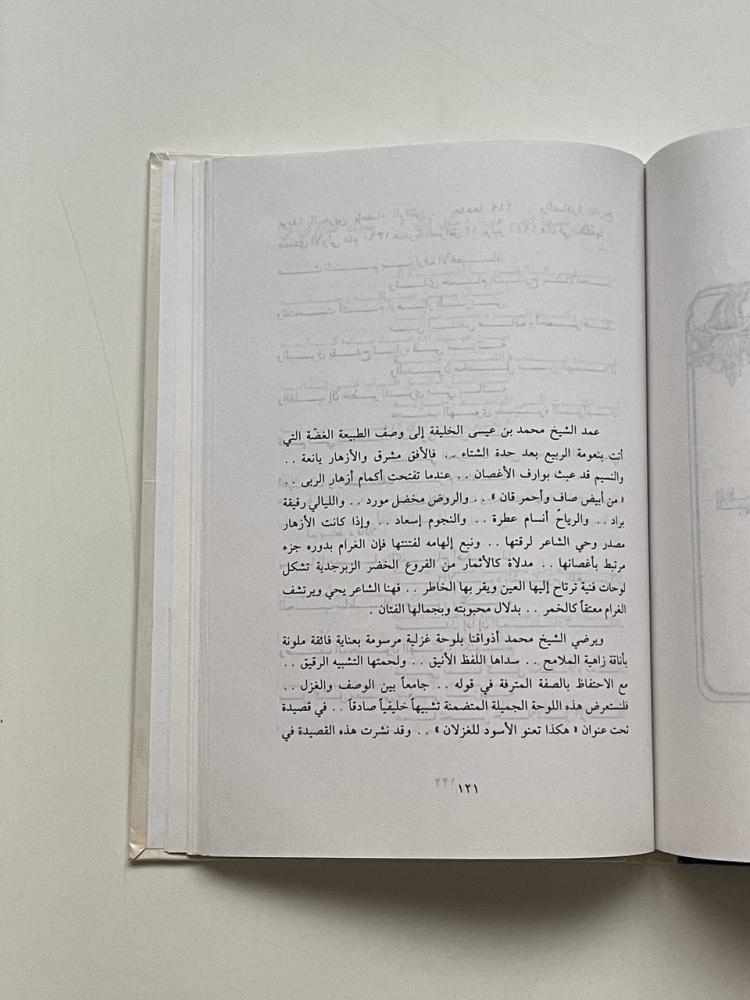 عمد الشيخ محمد بن عيسى الخليفة إلى وصف الطبيعة الغضّة التي
أتت بنعومة الربيع بعد حدة الشتاء . . فالأفق مشرق والأزهار يانعة . .
والنسيم قد عبث بوارف الأغصان . . عندما تفتحت أكمام أزهار الربى . .
« من أبيض صاف وأحمر قان » . . والروض مخضل مورد . . والليالي رقيقة
براد . . والرياح أنسام عطرة . . والنجوم إسعاد . . وإذا كانت الأزهار
مصدر وحي الشاعر لرقتها . . ونبع إلهامه لفتنتها فإن الغرام بدوره جزء
مرتبط بأغصانها . . مدلاة كالأثمار من الفروع الخضر الزبرجدية تشكل
لوحات فنية ترتاح إليها العين ويقر بها الخاطر . . فهنا الشاعر يحي ويرتشف
الغرام معتقاً كالخمر . . بدلال محبوبته وبجمالها الفتان .
ويرضي الشيخ محمد أذواقنا بلوحة غزلية مرسومة بعناية فائقة ملونة
بأناقة زاهية الملامح . . سداها اللفظ الأنيق . . ولحمتها التشبيه الرقيق . .
مع الاحتفاظ بالصفة المترفة في قوله . . جامعاً بين الوصف والغزل . .
فلنستعرض هذه اللوحة الجميلة المتضمنة تشبيهاً خليفياً صادقاً . . في قصيدة
تحت عنوان « هكذا تعنو الأسود للغزلان » . . وقد نشرت هذه القصيدة في
١٢١